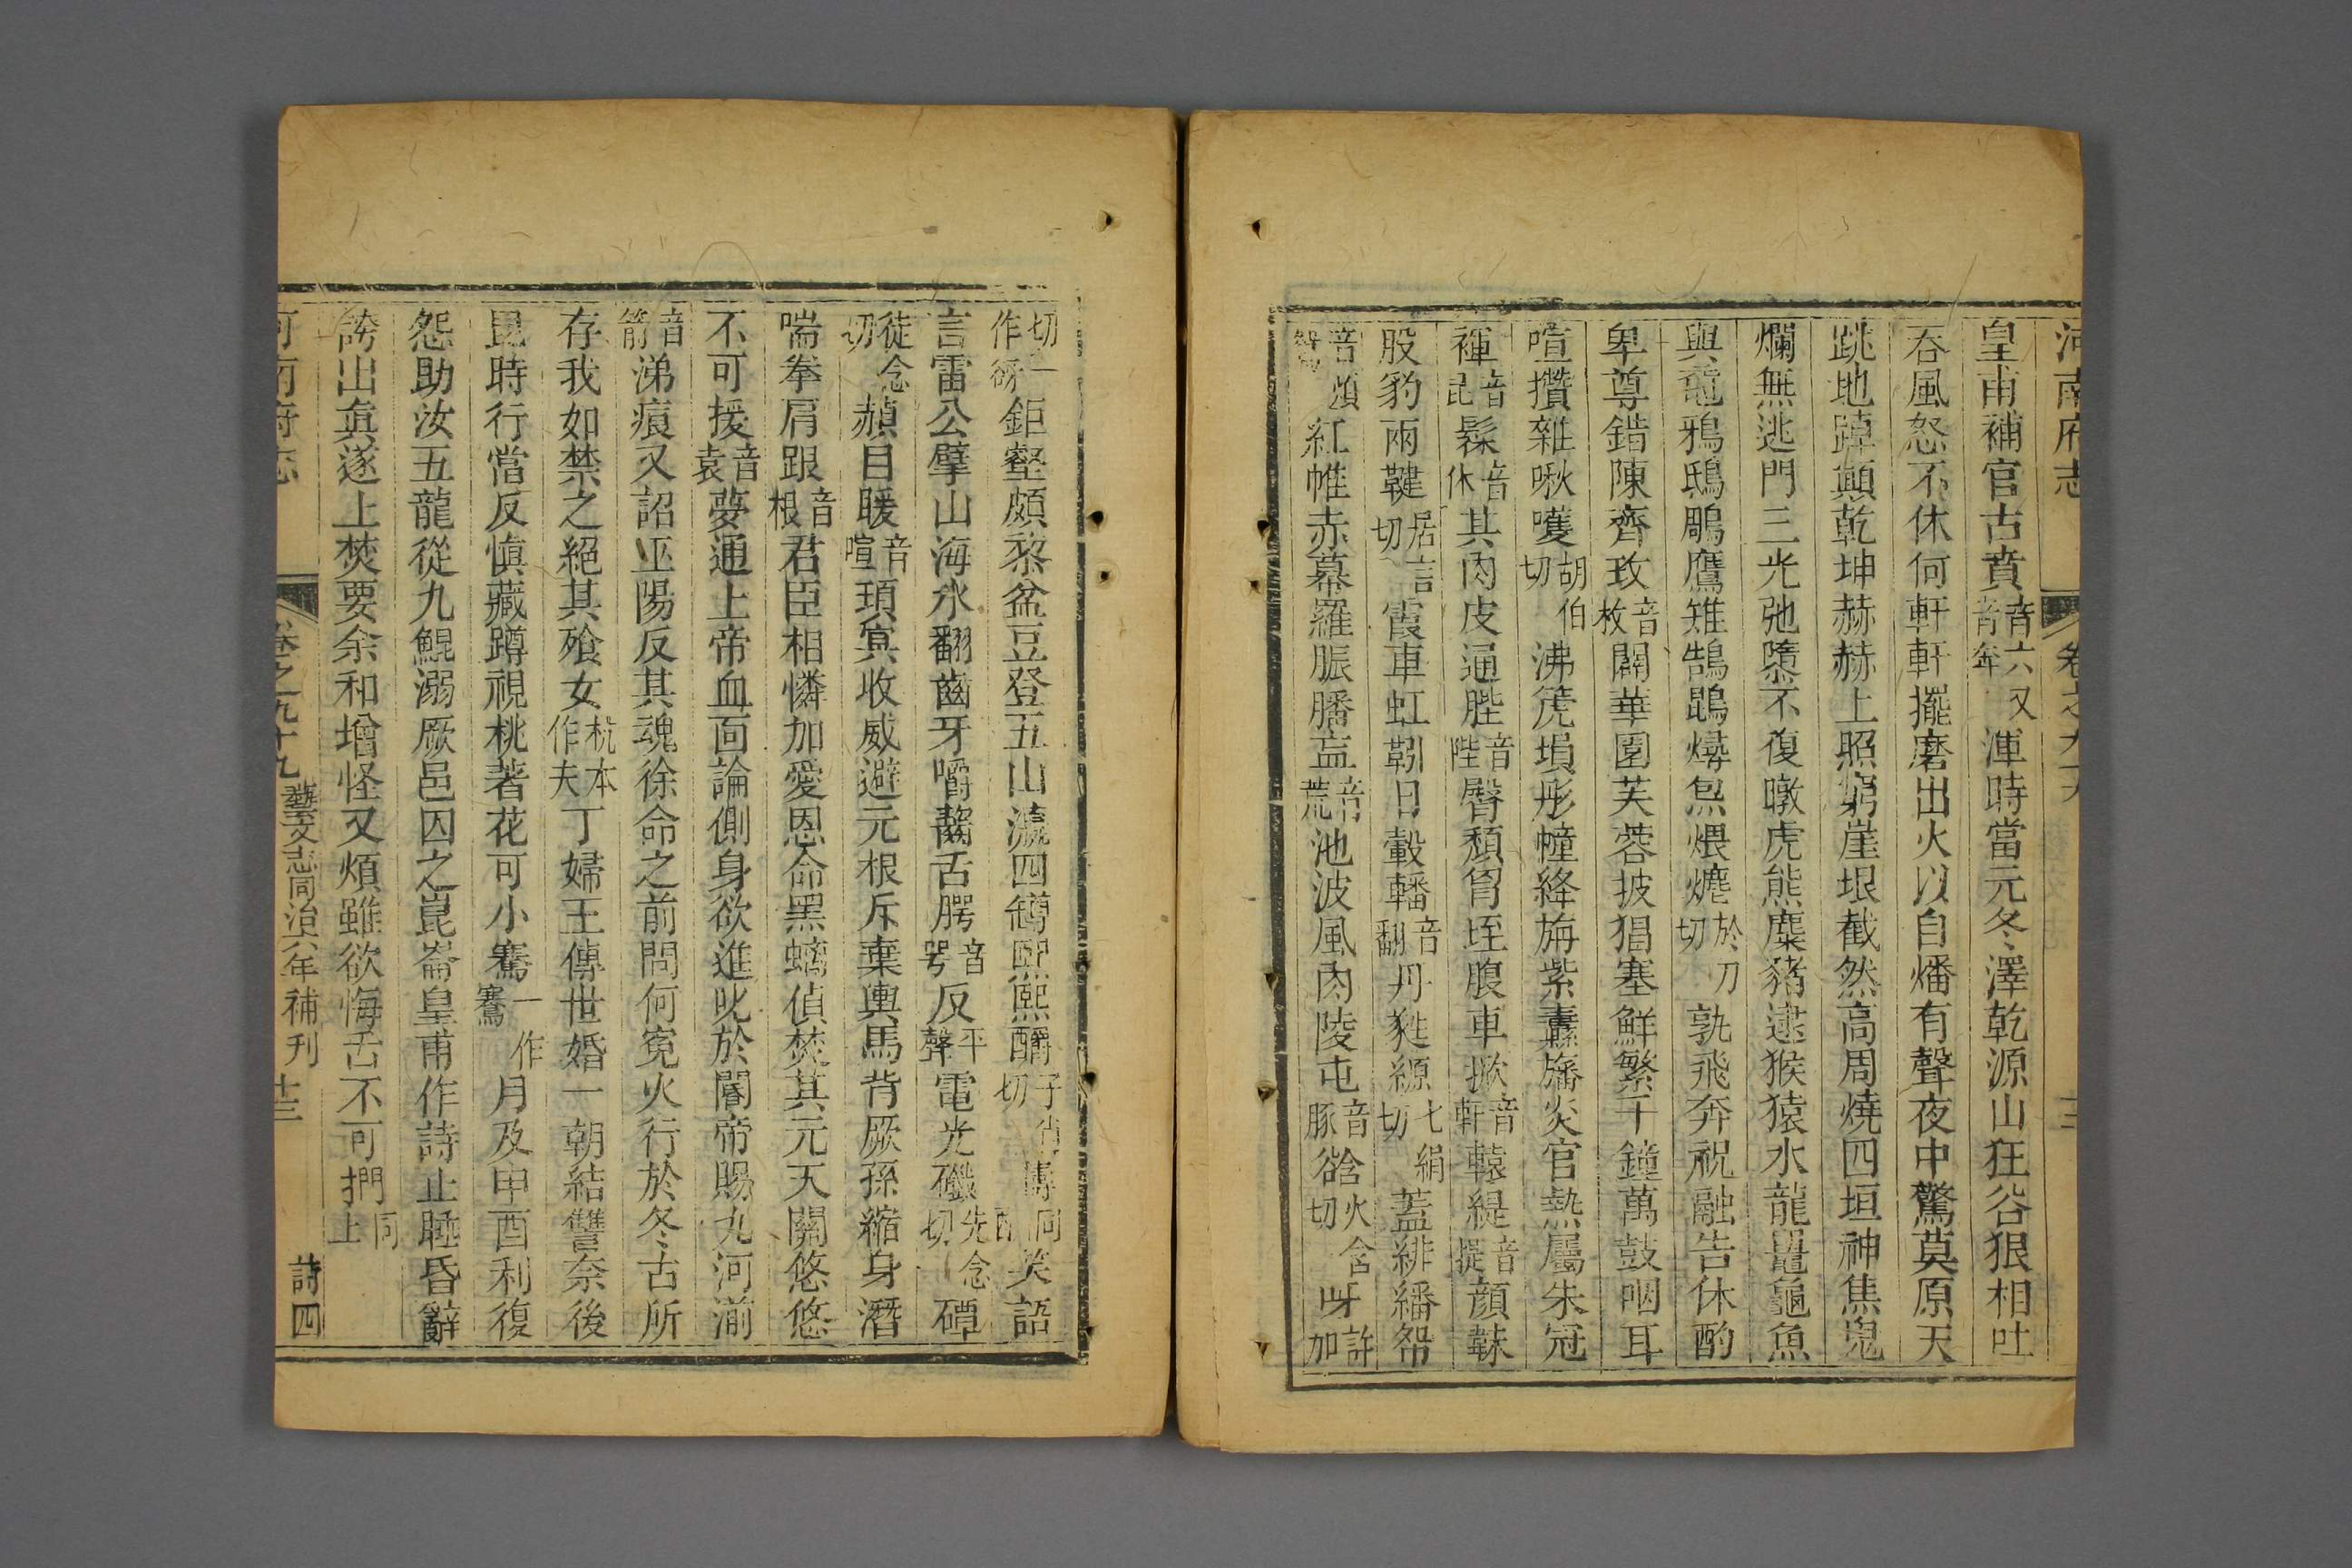 河南府志 卷之九十九
皇甫補官古賁音六又音年渾時當元冬澤乾源山狂谷狠相吐
吞風怒不休何軒軒擺磨出火以自燔有聲夜中驚莫原天
跳地踔顛乾坤赫赫上照窮崖垠截然高周燒四垣神焦鬼
爛無逃門三光弛隳不復暾虎熊麋豬逮猴猿水龍鼉龜魚
與黿鴉鴟鵰鷹雉鵠鵾燖炰煨爊於刀切孰飛奔祝融告休酌
卑尊錯陳齊玫音枚闢華園芙蓉披猖塞鮮繁千鐘萬鼓咽耳
喧攢雜啾嚄胡伯切沸箎塤彤幢絳旃紫纛旛炎官熱屬朱冠
褌音昆髹音休其肉皮通䏶音陛臀頹胷垤腹車掀音軒轅緹音提顏韎
股豹兩鞬居言切霞車虹靷日轂轓音翻丹蕤縓七絹切蓋緋繙帤
音頒紅帷赤幕羅脤膰衁音荒池波風肉陵屯音豚谽火含切呀許加
切一作谺鉅壑頗黎盆豆登五山瀛四罇熙熙釂子肖切同笑語
言雷公擘山海水翻齒牙嚼齧舌腭音咢反平聲電光䃸先念切磹
徒念切赬目暖音喧頊冥收威避元根斥棄輿馬背厥孫縮身潛
喘拳肩跟音根君臣相憐加愛恩命黑螭偵焚其元天關悠悠
不可援音袁夢通上帝血面論側身欲進叱於閽帝賜九河湔
音箭涕痕又詔巫陽反其魂徐命之前問何寃火行於冬古所
存我如禁之絕其飱女杭本作夫丁婦壬傳世婚一朝結讐奈後
昆時行當反愼藏蹲視桃著花可小騫一作騫月及申酉利復
怨助汝五龍從九鯤溺厥邑囚之崑崙皇甫作詩止睡昏辭
誇出眞遂上焚要余和增怪又煩雖欲悔舌不可捫同上
河南府志 卷之九十九 藝文志 同治六年補刊 詩四